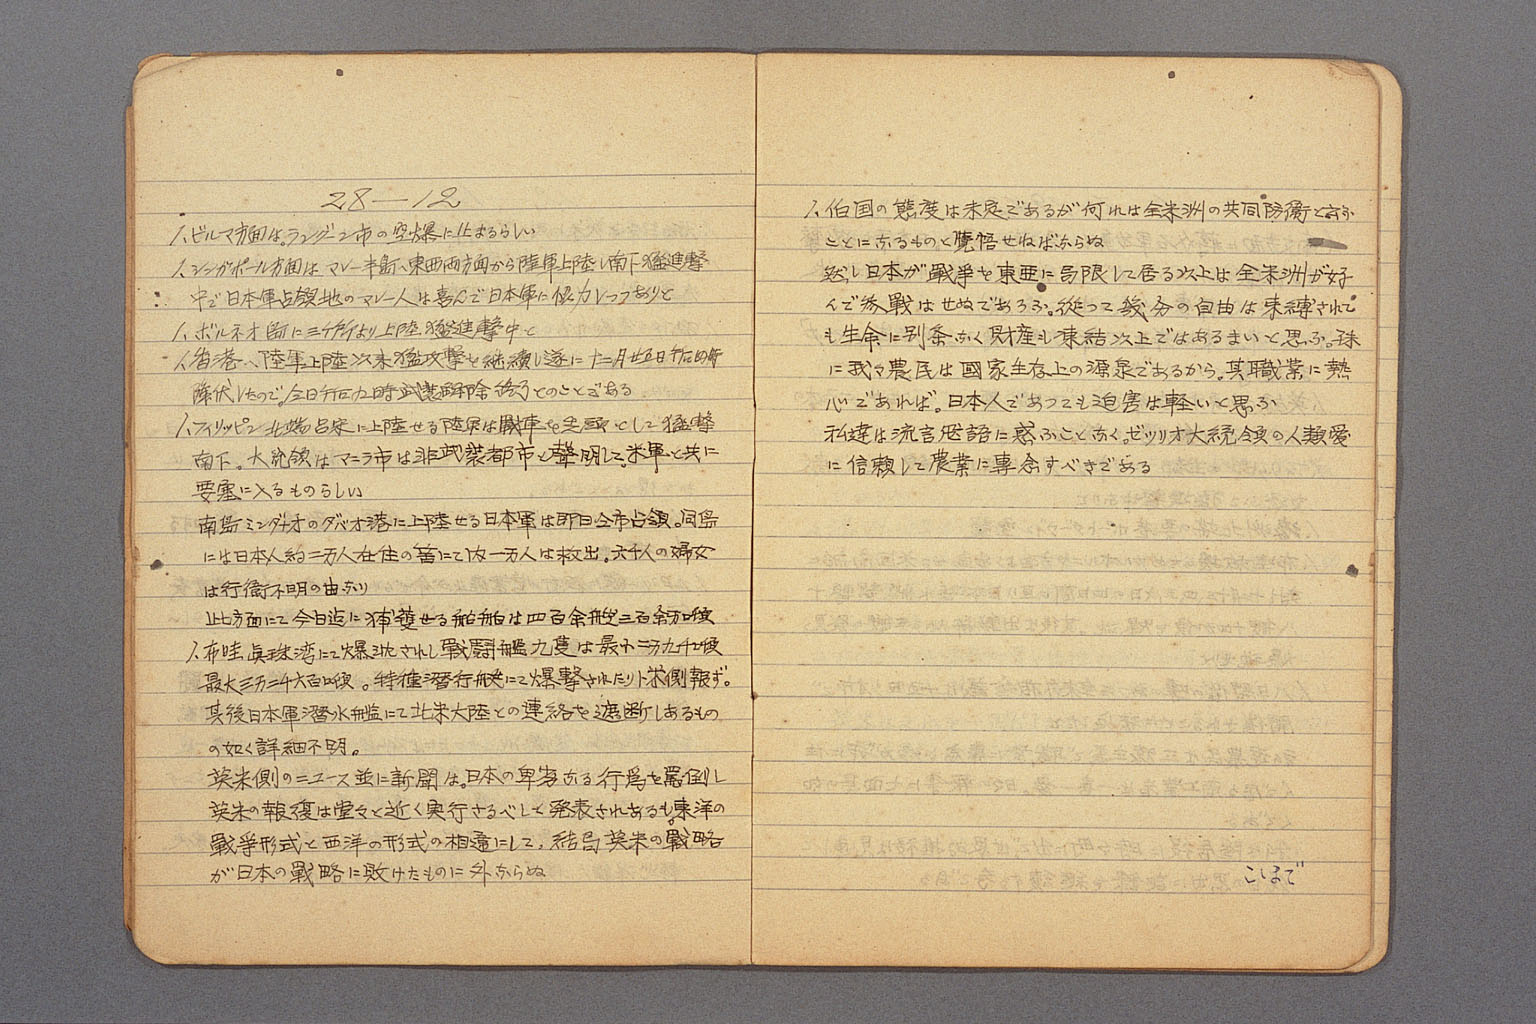 28—12
1、ビルマ方面は、ラングーン市の空爆に止まるらしい
1、シンガポール方面はマレー半島、東西両方面から陸軍上陸し南下猛進撃
中で日本軍占領地のマレー人は喜んで日本軍に協力しつつありと
1、ボルネオ島に三ヶ所より上陸猛進撃中と
1、香港へ陸軍上陸以来猛攻撃を継続し遂に十二月廿五日午后
降伏したので。今日午后九時武装解除終了とのことである
1、フィリッピン北端呂宋に上陸せる陸軍は戦車を先頭として猛撃
南下。大統領はマニラ市は非武装都市と声明して。米軍と共に
要塞に入るものらしい
南島ミンダナオのダバオ港に上陸せる日本軍は即日全市占領。同島
には日本人約二万人在住の筈にて内一万人は救出。六千人の婦女
は行衛不明の由なり
此方面にて今日迄に捕獲せる船舶は四百余艘三百余
1、布哇真珠湾にて爆沈されし戦闘艦九隻は最小二万九千噸
最大三万二千六百噸。特種潜行艇にて爆撃されたりト米側報ず。
其後日本軍潜水艦にて北米大陸との連絡を遮断しあるもの
の如く詳細不明。
英米側のニュース並に新聞は。日本の卑劣なる行為を罵倒し
英米の報復は堂々と近く実行さるべしと発表されあるも。東洋の
戦争形式と西洋の形式の相違にして、結局英米の戦略
が日本の戦略に敗けたものに外ならぬ
1、伯国の態度は未定であるが何れは全米洲の共同防衛と云ふ
ことになるものと覚悟せねばならぬ
然し日本が戦争を東亜に局限して居る以上は全米洲が好
んで参戦はせぬであろふ。従って幾分の自由は束縛されて
も生命に別条なく財産も凍結以上ではあるまいと思ふ。殊
に我々農民は国家生存上の源泉であるから。其職業に熱
心であれば。日本人であつても迫害は軽いと思ふ
私達は流言蜚語に惑ふことなく。ゼツリオ大統領の人類愛
に信頼して農業に専念すべきである
こゝまで